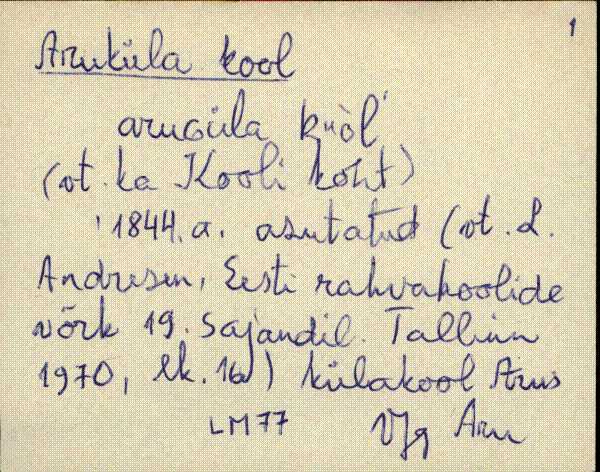 1
Aruküla kool
aruGüla kùòl'
(vt. ka Kooli koht)
1844. a. asutatud (vt. L.
Andresen, Eesti rahvakoolide
võrk 19. sajandil. Tallinn
1970, lk. 16) külakool Arus
LM77 VJg Aru